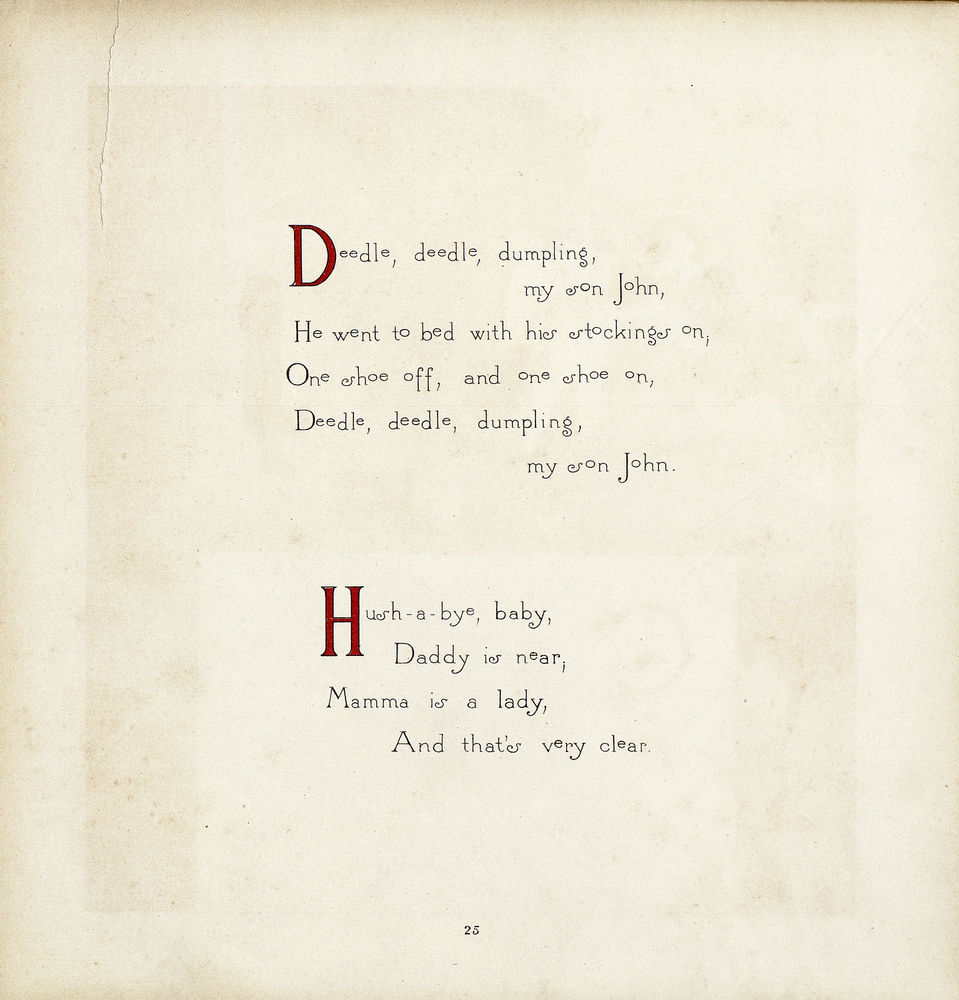 Deedle, deedle, dumpling,
my son John,
He went to bed with his stockings on;
One shoe off, and one shoe on,
Deedle, deedle, dumpling,
my son John.
Hush-a-bye, baby,
Daddy is near;
Mamma is a lady,
And that's very clear.
25